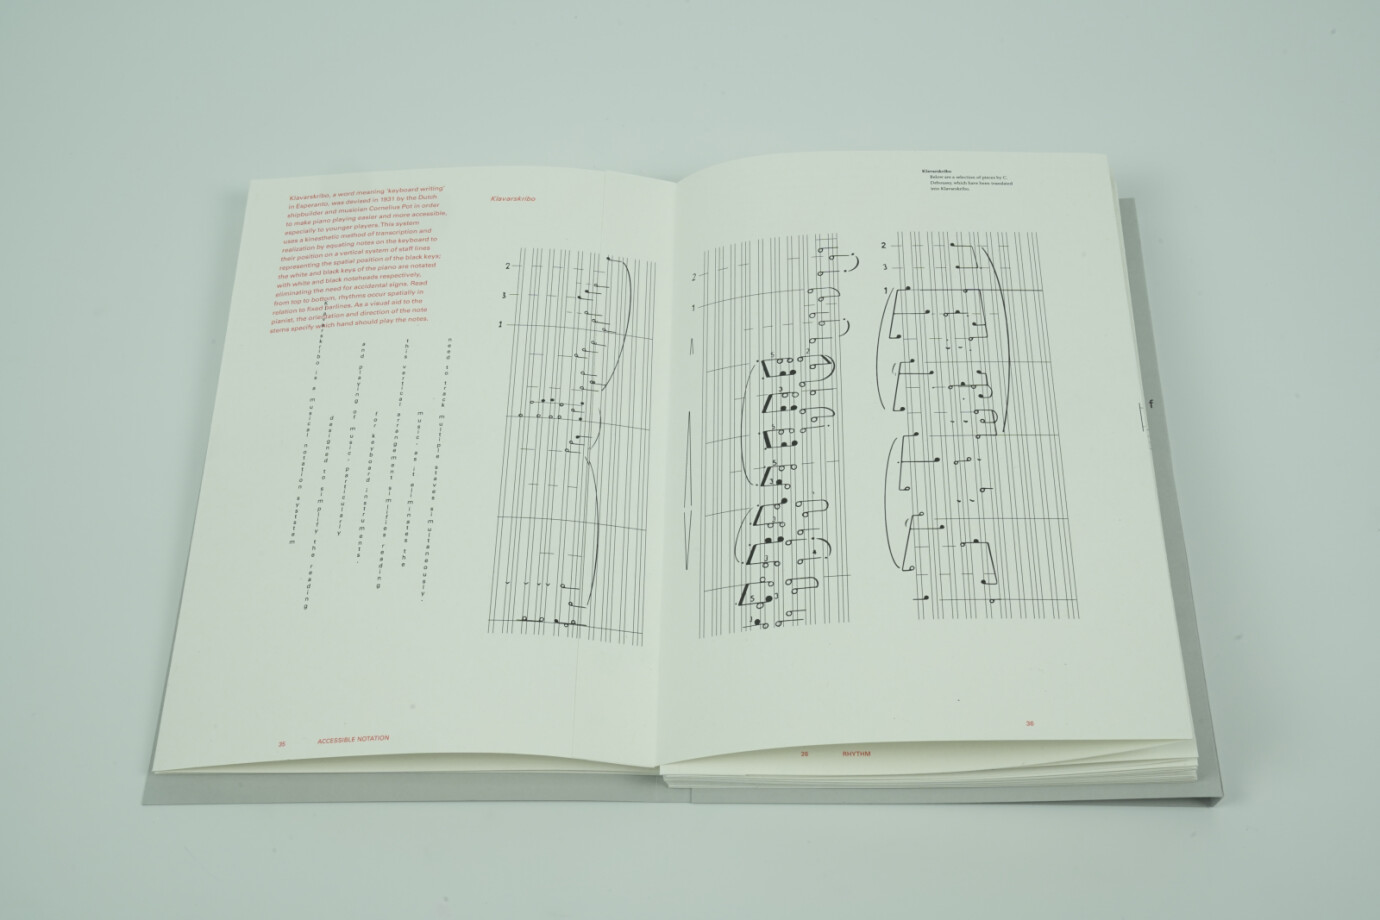 Klavarskribo, a word meaning 'keyboard writing'
in Esperanto, was devised in 1931 by the Dutch
shipbuilder and musician Cornelius Pot in order
to make piano playing easier and more accessible,
especially to younger players. This system
uses a kinesthetic method of transcription and
realisation by equating notes on the keyboard to
their position on a vertical system of staff lines
representing the spatial position of the black keys;
the white and black keys of the piano are notated
with white and black noteheads respectively,
eliminating the need for accidental signs. Read
from top to bottom, rhythms occur spatially in
relation to fixed barlines. As a visual aid to the
pianist, the orientation and direction of the note
stems specify which hand should play the notes.
Klavarskribo is a musical notation system
designed to simplify the reading
and playing of music, particularly
for keyboard instruments.
this vertical arrangement simplifies reading
music, as it eliminates the
need to track multiple staves simultaneously.
Klavarskribo
2
3
1
36
ACCESSIBLE NOTATION
Klavarskribo
Below are a selection of pieces by C.
Debussy, which have been translated
into Klavarskribo.
2
1
5
2
3
3
5
3
1
3
4
5
3
1
2
3
1
f
36
38
RHYTHM